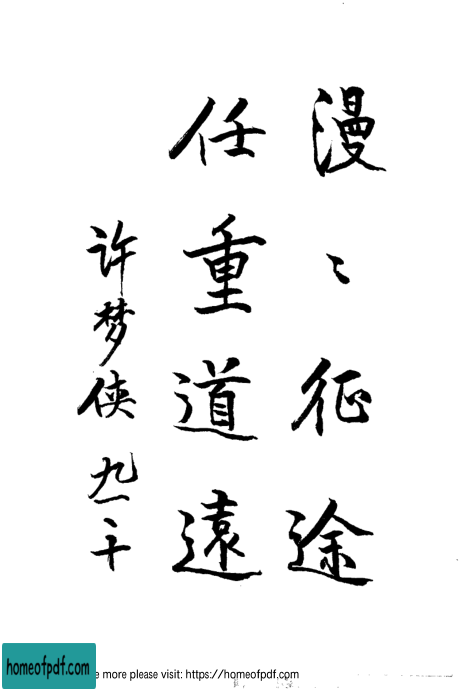 漫〻征途
任重道遠
许梦侠 九一.十
homeofpdf.com
e more please visit: https://homeofpdf.com